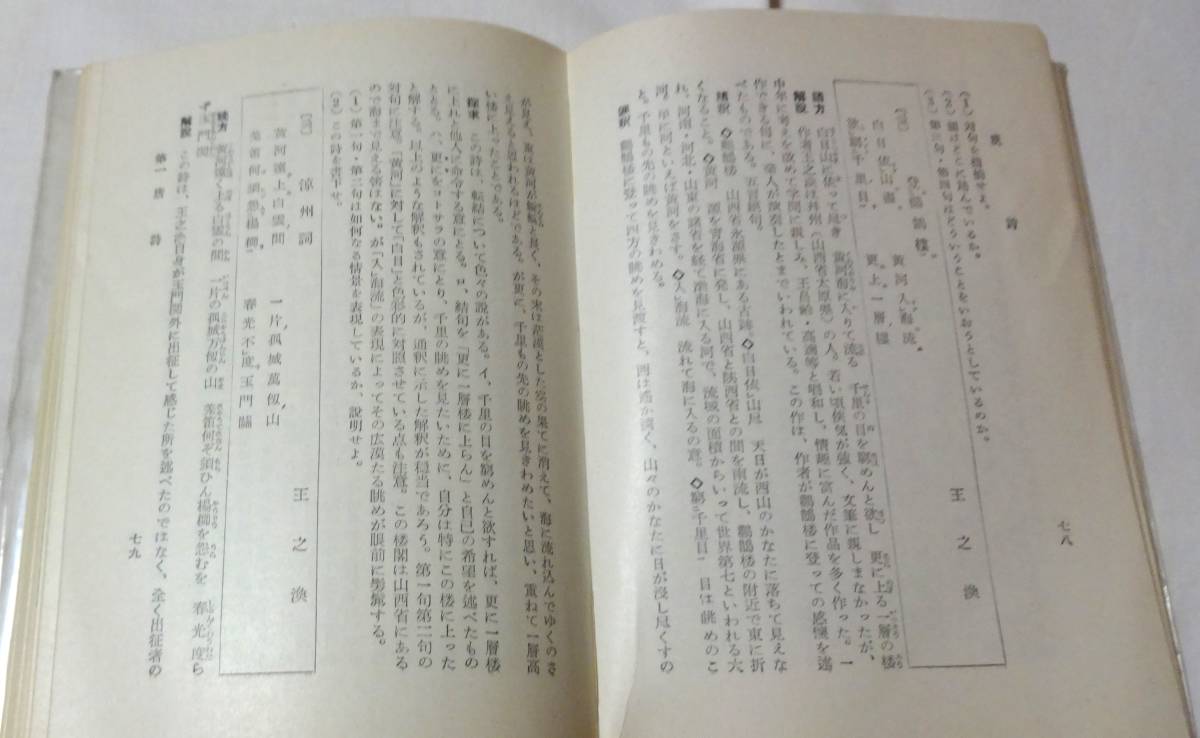 唐　詩
七八
(1) 対句を指摘せよ。
(2) 韻はどこに踏んでいるか。
(3) 第三句・第四句はどういうことをいおうとしているのか。
登鸛鵲樓 王之渙
白日依山盡 黄河入海流
欲窮千里目 更上一層樓
読方 白日山に依って尽き 黄河海に入りて流る 千里の目を窮めんと欲し 更に上る一層の楼
解説 作者王之渙は幷州(山西省太原県)の人。若い頃侠気が強く、文筆に親しまなかったが、
中年に考えを改めて学問に親しみ、王昌齢・高適等と唱和し、情趣に富んだ作品を多く作った。一
作できる毎に、楽人が演奏したとまでいわれている。この作は、作者が鸛鵲楼に登っての感懐を述
べたものである。五言絶句。
語釈 ◇鸛鵲楼 山西省永済県にある古跡。◇白日依山尽 天日が西山のかなたに落ちて見えな
くなること。◇黄河 源を青海省に発し、山西省と陝西省との間を南流し、鸛鵲楼の附近で東に折
れ、河南・河北・山東の諸省を経て渤海に入る河で、流域の面積からいって世界第七といわれる大
河。単に河といえば黄河をさす。◇入海流 流れて海に入るの意。◇窮千里目 目は眺めのこ
と。千里もの先の眺めを見きわめる。
通釈 鸛鵲楼に登って四方の眺めを見渡すと、西は遙か遠く、山々のかなたに日が没し尽くすの
が見え、東は黄河が蜿蜒と長く、その末は茫漠とした空の果てに消えて、海に流れ込んでゆくのさ
え見えると思われるほどである。が更に、千里もの先の眺めを見きわめたいと思い、重ねて一層高
い楼に上ったことである。
探求 この詩は、転結について色々の説がある。イ、千里の目を窮めんと欲すれば、更に一層楼
に上れと他人に命令する意にとる。ロ、結句を「更に一層楼に上らん」と自己の希望を述べたもの
ととる。ハ、更にをコトサラの意にとり、千里の眺めを見たいために、自分は特にこの楼に上った
と解する。以上のような解釈もされているが、通釈に示した解釈が穏当であろう。第一句第二句の
対句に注意。「黄河」に対して「白日」と色彩的に対照させている点も注意。この楼閣は山西省にある
ので海まで見える筈ない。が「入海流」の表現によってその広漠たる眺めが眼前に髣髴する。
(1) 第一句・第二句は如何なる情景を表現しているか、説明せよ。
(2) この詩を書下せ。
涼州詞 王之渙
黄河遠上白雲間 一片孤城萬仞山
羌笛何須怨楊柳 春光不度玉門關
読方 黄河遠く上る白雲の間 一片の孤城万仞の山 羌笛何ぞ須ひん楊柳を怨むを 春光度ら
ず玉門関
解説 この詩は、王之渙自身が玉門関外に出征して感じた所を述べたのではなく、全く出征者の
第一 唐詩
七九